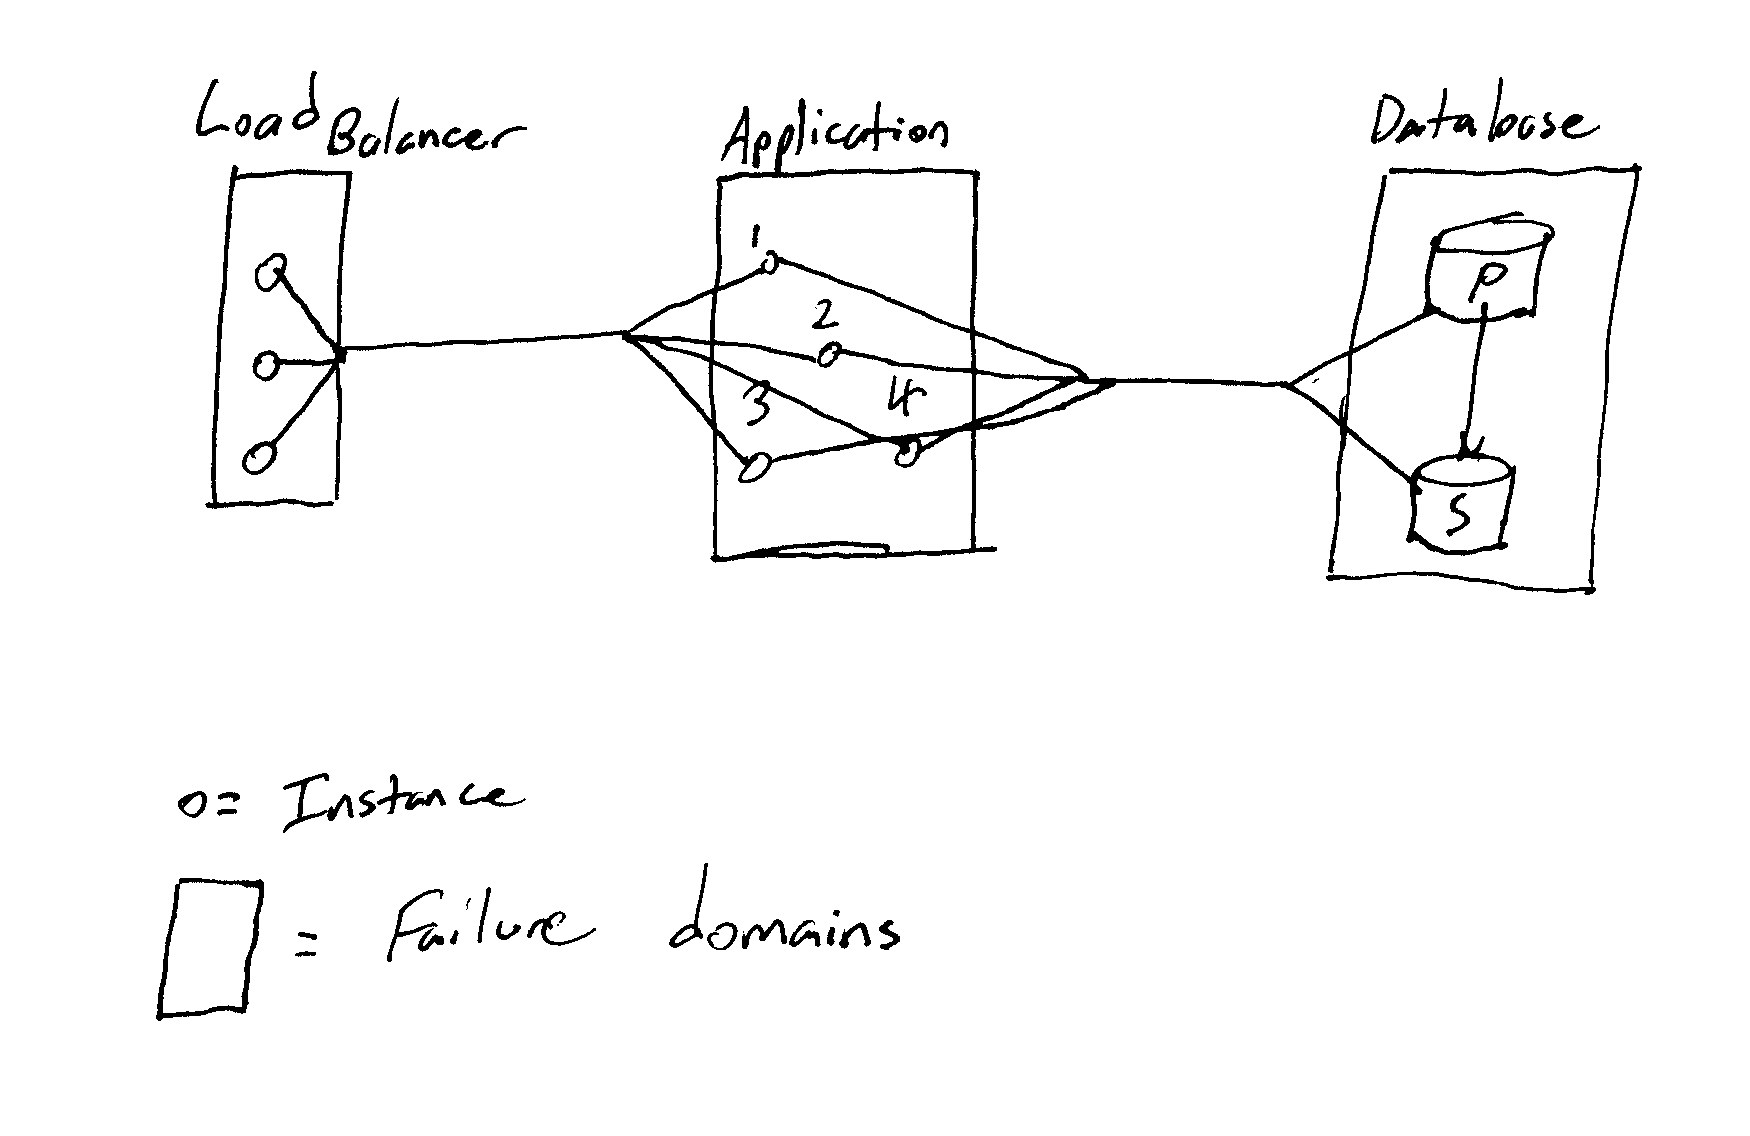 Load Balancer
Application
Database
1
2
3
4
P
S
o = Instance
= Failure domains